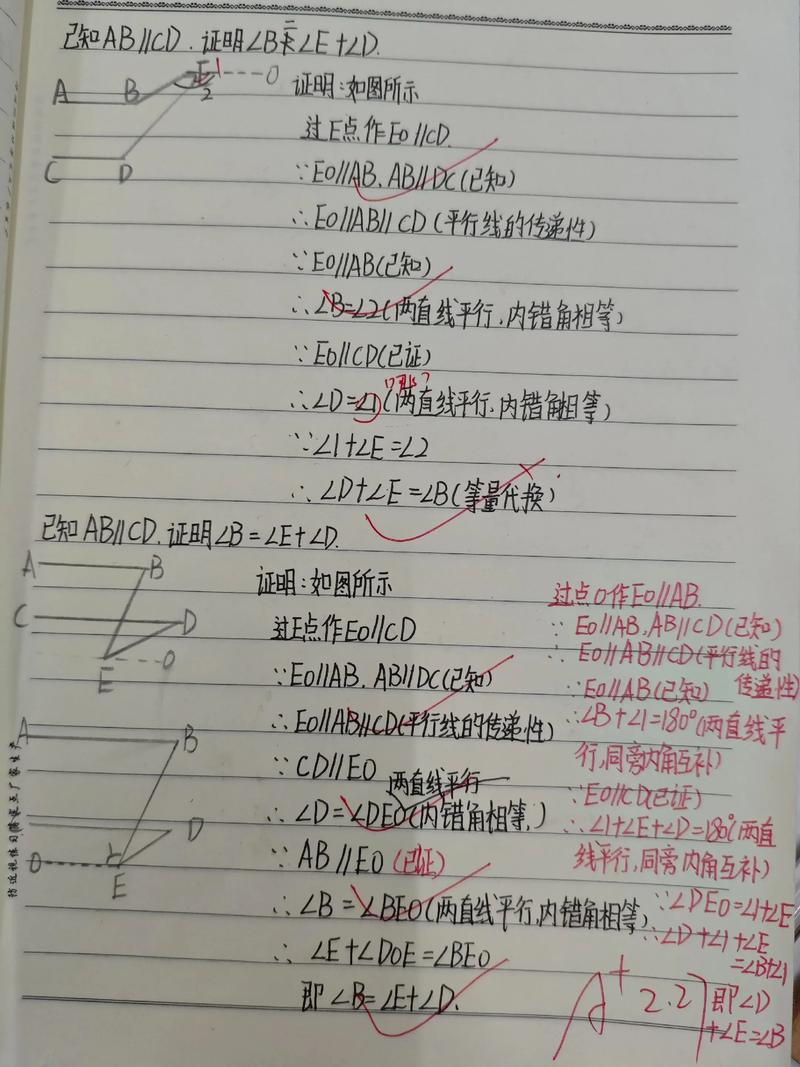 已知AB∥CD.证明∠B=∠E+∠D.
A B E 1 2 O
C D
证明:如图所示
过E点作EO∥CD.
∵EO∥AB.AB∥DC(已知)
∴EO∥AB∥CD(平行线的传递性)
∵EO∥AB(已知)
∴∠B=∠2(两直线平行.内错角相等)
∵EO∥CD(已证)
∴∠D=∠1(两直线平行.内错角相等)
∵∠1+∠E=∠2
∴∠D+∠E=∠B(等量代换)
已知AB∥CD.证明∠B=∠E+∠D.
A B
C D
E O
证明:如图所示
过E点作EO∥CD
∵EO∥AB.AB∥DC(已知)
∴EO∥AB∥CD(平行线的传递性)
∵CD∥EO
两直线平行
∴∠D=∠DEO(内错角相等.)
∵AB∥EO(已证)
∴∠B=∠BEO(两直线平行,内错角相等)
∴∠E+∠DOE=∠BEO
即∠B=∠E+∠D.
A B
D
O E
过点O作EO∥AB.
∵EO∥AB.AB∥CD(已知)
∴EO∥AB∥CD(平行线的
传递性)
∵EO∥AB(已知)
∴∠B+∠1=180°(两直线平
行,同旁内角互补)
∵EO∥CD(已证)
∴∠1+∠E+∠D=180°(两直
线平行,同旁内角互补)
∵∠DEO=∠1+∠E
∴∠D+∠1+∠E
=∠B+∠1
即∠D
+∠E=∠B
A+ 2.2